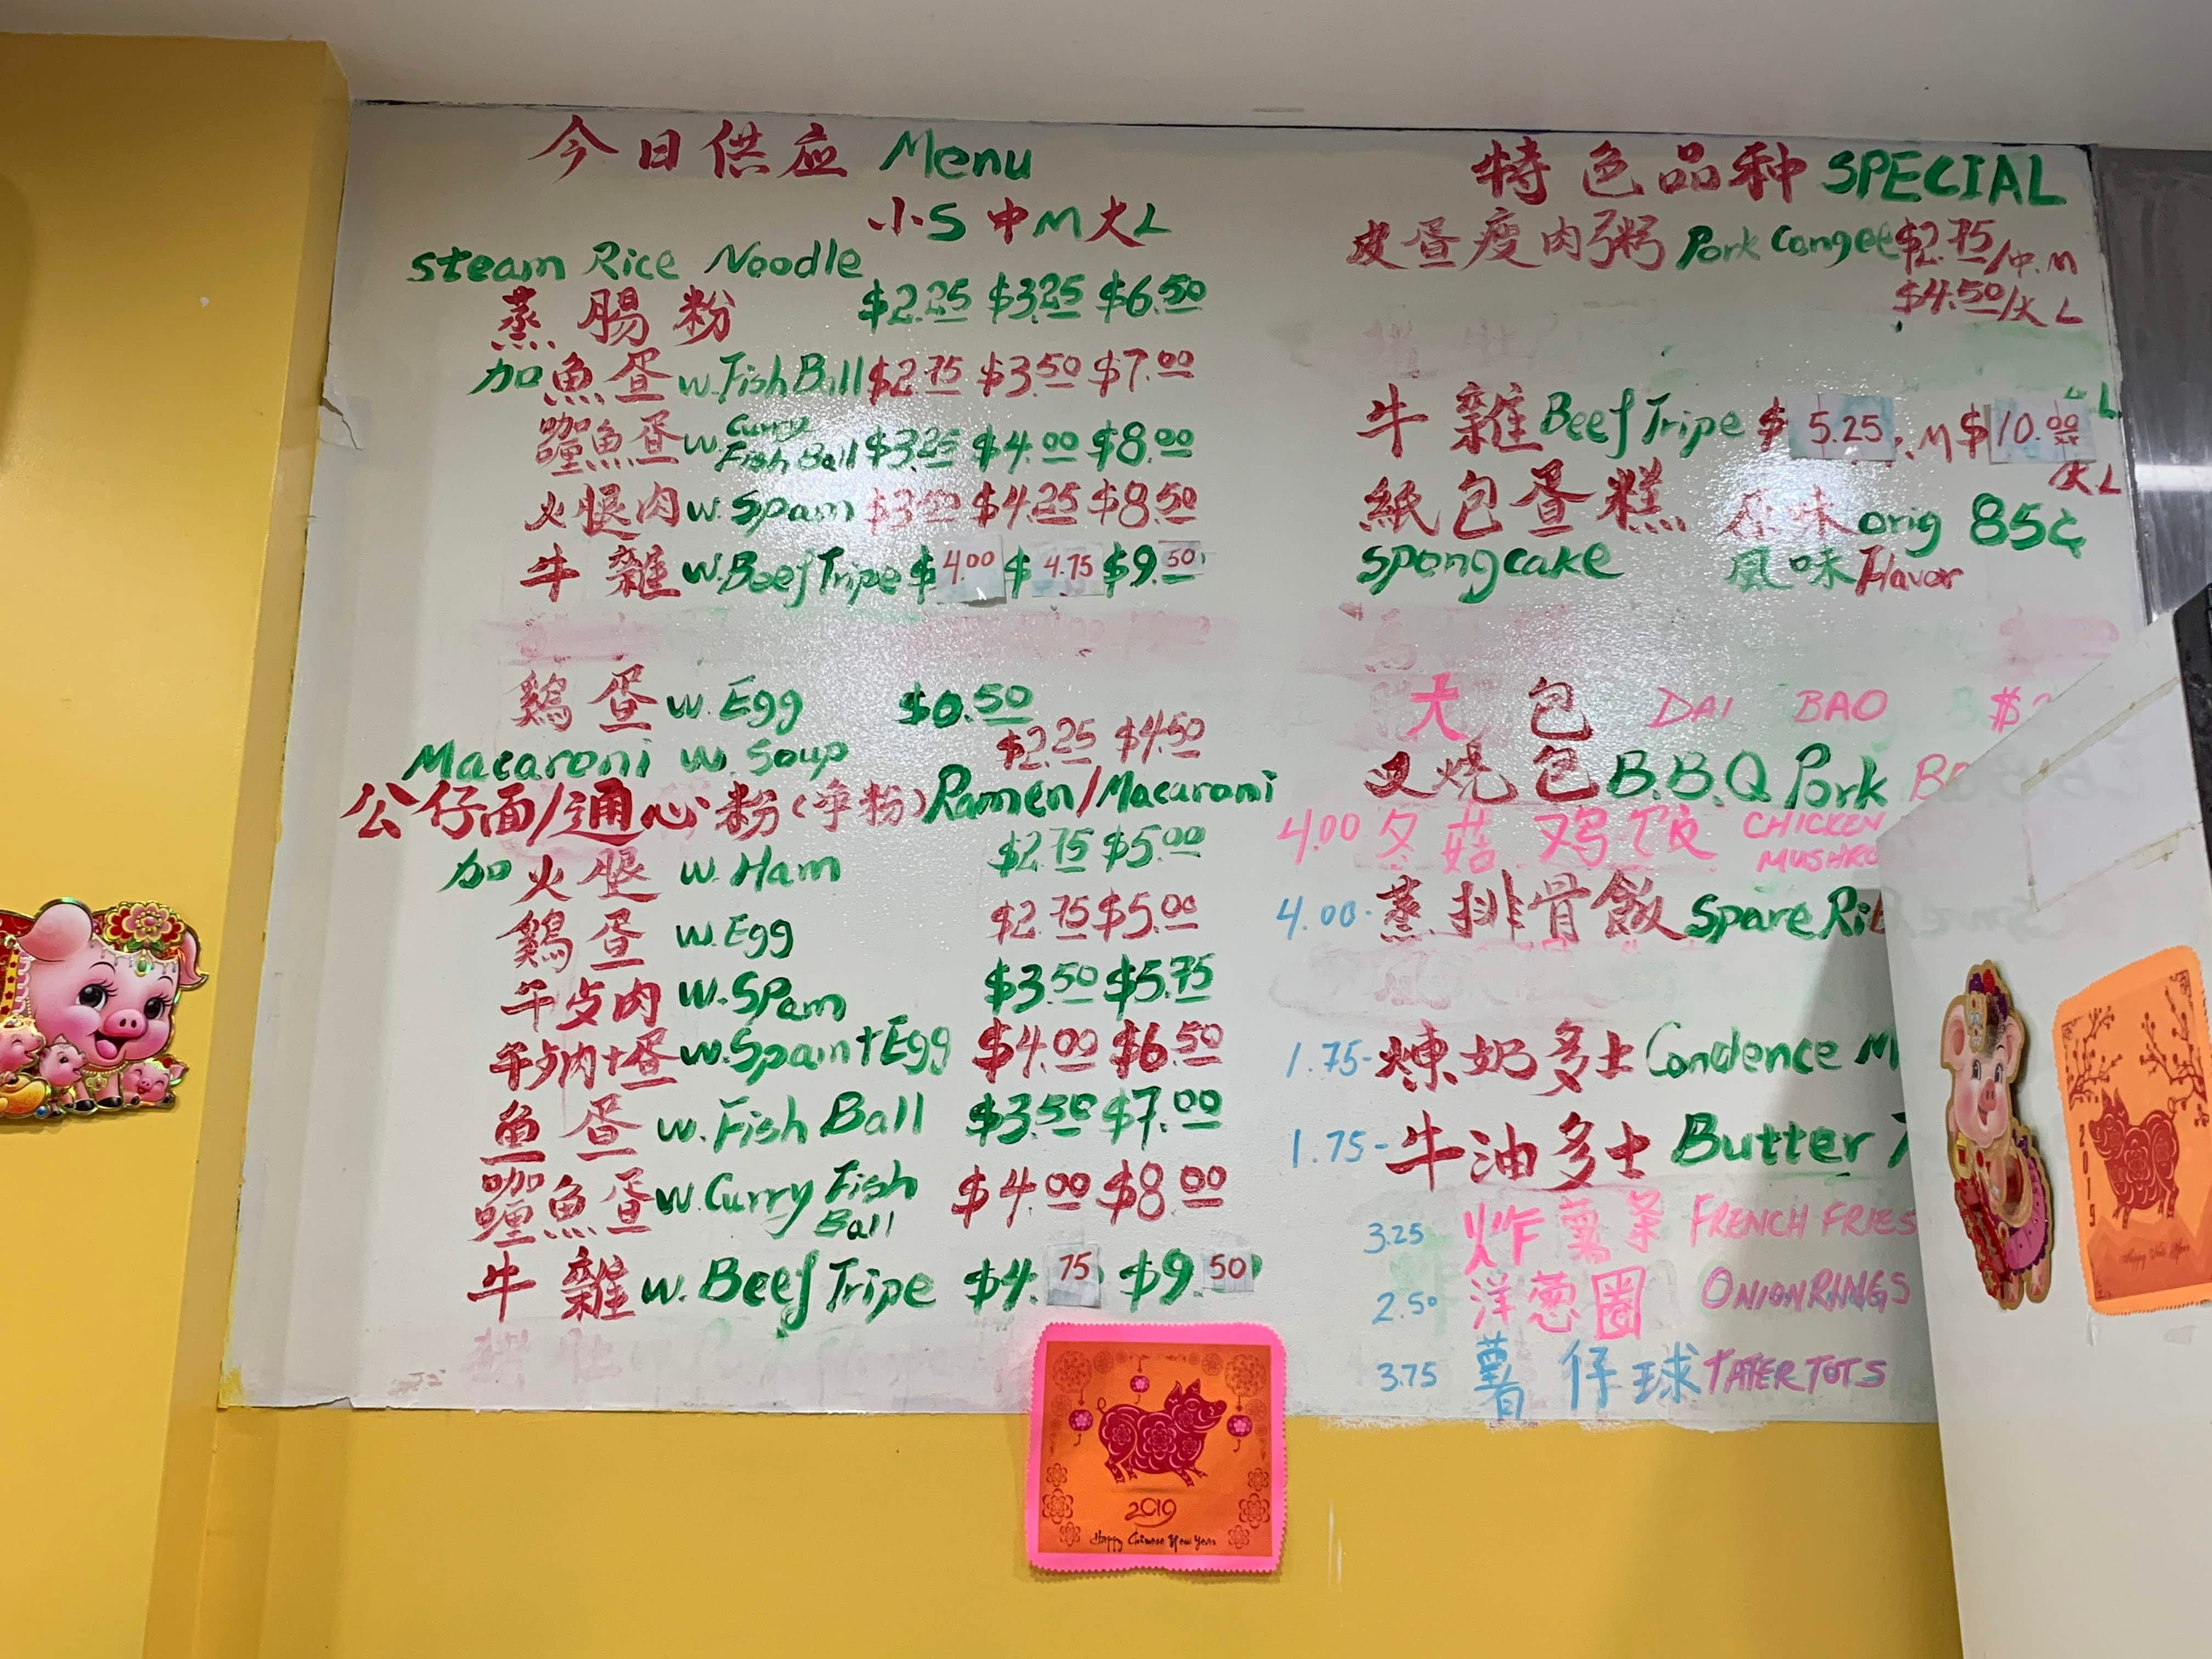 今日供应 Menu
小S 中M 大L
Steam Rice Noodle
蒸腸粉 $2.25 $3.25 $6.50
加魚蛋 w.Fish Ball $2.75 $3.50 $7.00
咖喱魚蛋 w. Curry Fish Ball $3.25 $4.00 $8.00
火腿肉 w. Spam $3.50 $4.25 $8.50
牛雜 w.Beef Tripe $4.00 $4.75 $9.50
鷄蛋 w. Egg $0.50
Macaroni w. Soup $2.25 $4.50
公仔面/通心粉(净粉) Ramen/Macaroni
加火腿 w. Ham $2.75 $5.00
鷄蛋 w.Egg $2.75 $5.00
午歺肉 w.SPam $3.50 $5.75
午歺肉+蛋 w.Spam+Egg $4.00 $6.50
魚蛋 w.Fish Ball $3.50 $7.00
咖喱魚蛋 w.Curry Fish Ball $4.00 $8.00
牛雜 w.Beef Tripe $4.75 $9.50
特色品种 SPECIAL
皮蛋瘦肉粥 Pork Congee $2.75/中.M
$4.50/大 L
牛雜 Beef Tripe $5.25 M $10.00
大 L
紙包蛋糕 原味 orig 85¢
Spongcake 風味 Flavor
大包 DAI BAO $
叉燒包 B.B.Q Pork
4.00 冬菇鸡饭 CHICKEN
4.00- 蒸排骨飯 Spare
1.75- 煉奶多士 Condence
1.75- 牛油多士 Butter
3.25 炸薯条 FRENCH FRIES
2.50 洋葱圈 ONION RINGS
3.75 薯仔球 TATER TOTS
2019
Happy Chinese New Year
2019